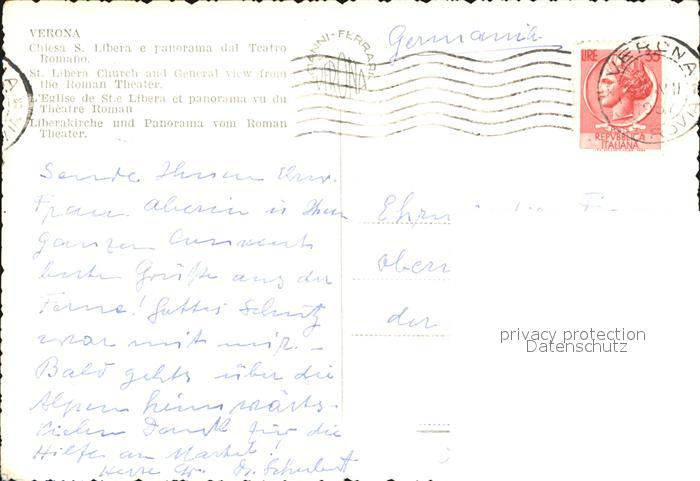 VERONA
Chiesa S. Libera e panorama dal Teatro
Romano.
St. Libera Church and General view from
the Roman Theater.
L'Eglise de St.e Libera et panorama vu du
Théatre Roman
Liberakirche und Panorama vom Roman
Theater.
Germania
VERONA
LIRE
REPVBBLICA
ITALIANA
Sende Ihnen Ehrw.
Frau Oberin u Ihrem
ganzen Convent
beste Grüße aus der
Ferne! Gottes Schutz
war mit mir. –
Bald gehts über die
Alpen heimwärts.
Vielen Dank für die
Hilfe an Martel!
Dr. Schubert
Ehrw
Ober
der
privacy protection
Datenschutz